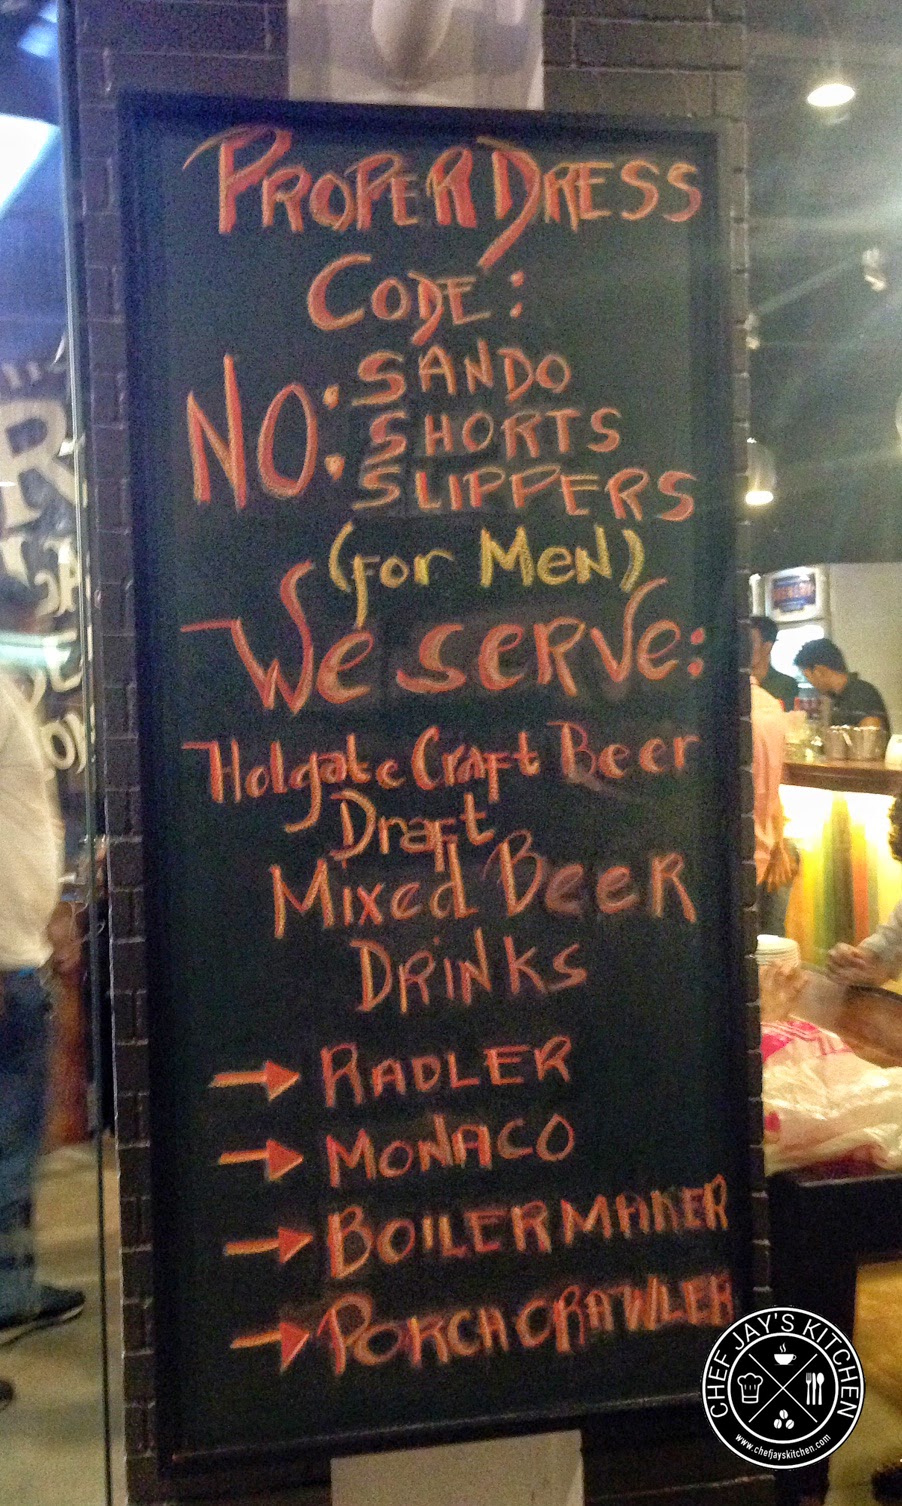 PROPER DRESS
CODE:
NO: SANDO
SHORTS
SLIPPERS
(for Men)
We serve:
Holgate Craft Beer
Draft
Mixed Beer
Drinks
→ RADLER
→ MONACO
→ BOILERMAKER
→ PORCHCRAWLER
CHEF JAY'S KITCHEN
www.chefjayskitchen.com